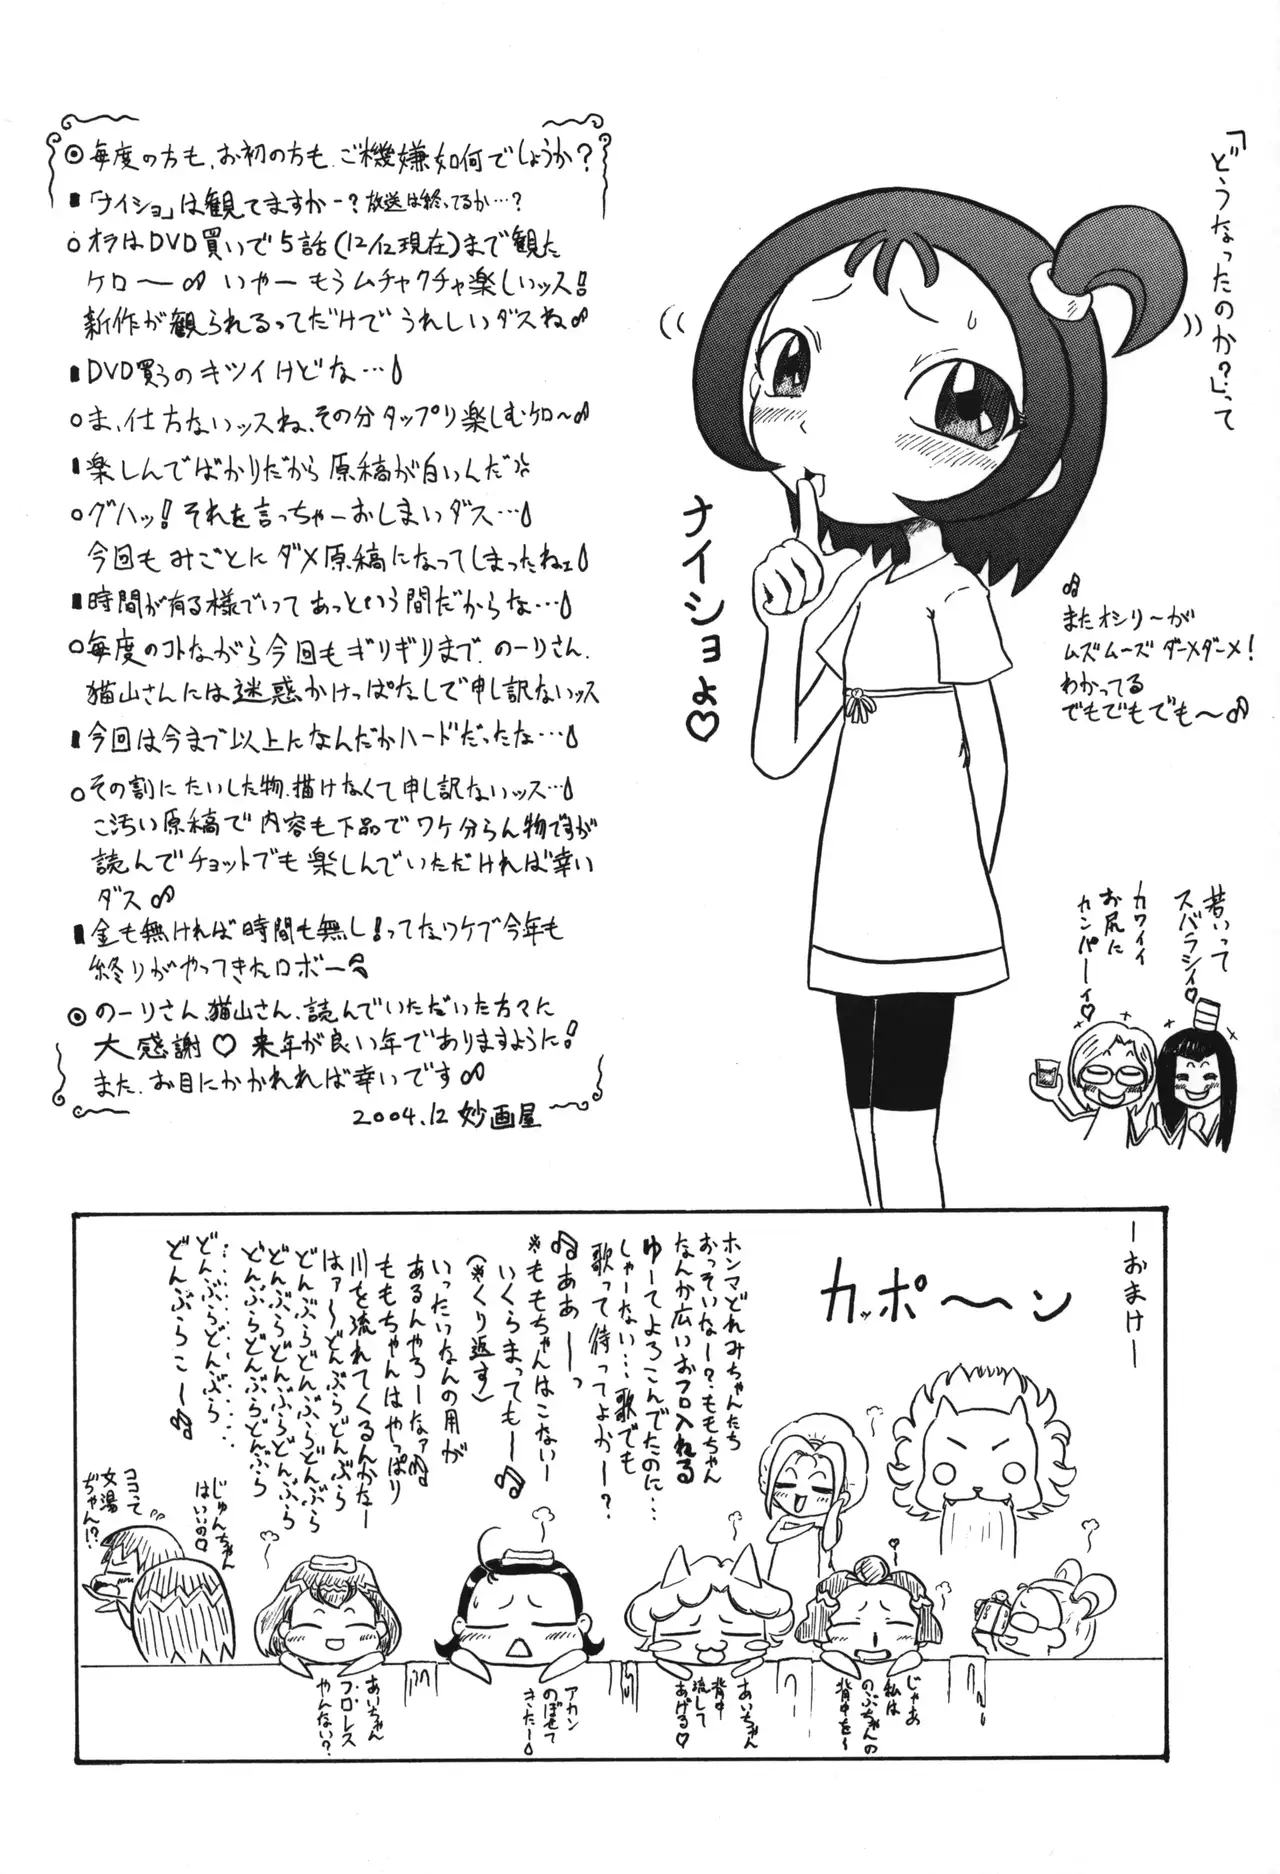 ◎毎度の方も、お初の方も、ご機嫌如何でしょうか?
■「ナイショ」は観てますかー?放送は終ってるか…?
○オラはDVD買いで5話(12/12現在)まで観た
ケロ〜♪ いやー もうムチャクチャ楽しいッス!
新作が観られるってだけでうれしいダスね♪
■DVD買うのキツイけどな…
○ま、仕方ないッスね、その分タップリ楽しむケロ〜♪
■楽しんでばかりだから原稿が白いんだ
○グハッ!それを言っちゃーおしまいダス…
今回もみごとにダメ原稿になってしまったねェ
■時間が有る様でいってあっという間だからな…
○毎度のコトながら今回もギリギリまで、のーりさん、
猫山さんには迷惑かけっぱなしで申し訳ないッス
■今回は今まで以上になんだかハードだったな…
○その割にたいした物、描けなくて申し訳ないッス…
こ汚い原稿で内容も下品でワケ分らん物ですが
読んでチョットでも楽しんでいただければ幸い
ダス♪
■金も無ければ時間も無し!ってなワケで今年も
終りがやってきたロボー
◎のーりさん、猫山さん、読んでいただいた方々に
大感謝♡ 来年が良い年でありますように!
また、お目にかかれれば幸いです♪
2004.12 妙画屋
「どうなったのか?」って
ナイショよ♡
♪
またオシリ〜が
ムズムーズ ダーメダーメ!
わかってる
でもでもでも〜♪
若いって
スバラシィ♡
カワイイ
お尻に
カンパーイ♡
ーおまけー
カッポ〜ン
ホンマどれみちゃんたち
おっそいなー?ももちゃん
なんか広いおフロ入れる
ゆーてよろこんでたのに…
しゃーない…歌でも
歌って待ってよかー?
♫ああーっ
※ももちゃんはこないー
いくらまってもー♫
(※くり返す)
いったいなんの用が
あるんやろーなァ♪
ももちゃんはやっぱり
川を流れてくるんかなー
はァ〜どんぶらどんぶら
どんぶらどんぶらどんぶら
どんぶらどんぶらどんぶら
どんぶらどんぶらどんぶら
…………………
どんぶらどんぶら
どんぶらこー♫
じゅんちゃん
はいいの♡
ココって
女湯
ぢゃん!?
じゃあ
私は
のぶちゃんの
背中を〜
あいちゃん
背中
流して
あげる♡
アカン
のぼせて
きたー
あいちゃん
フ・ロ・レス
やんない?